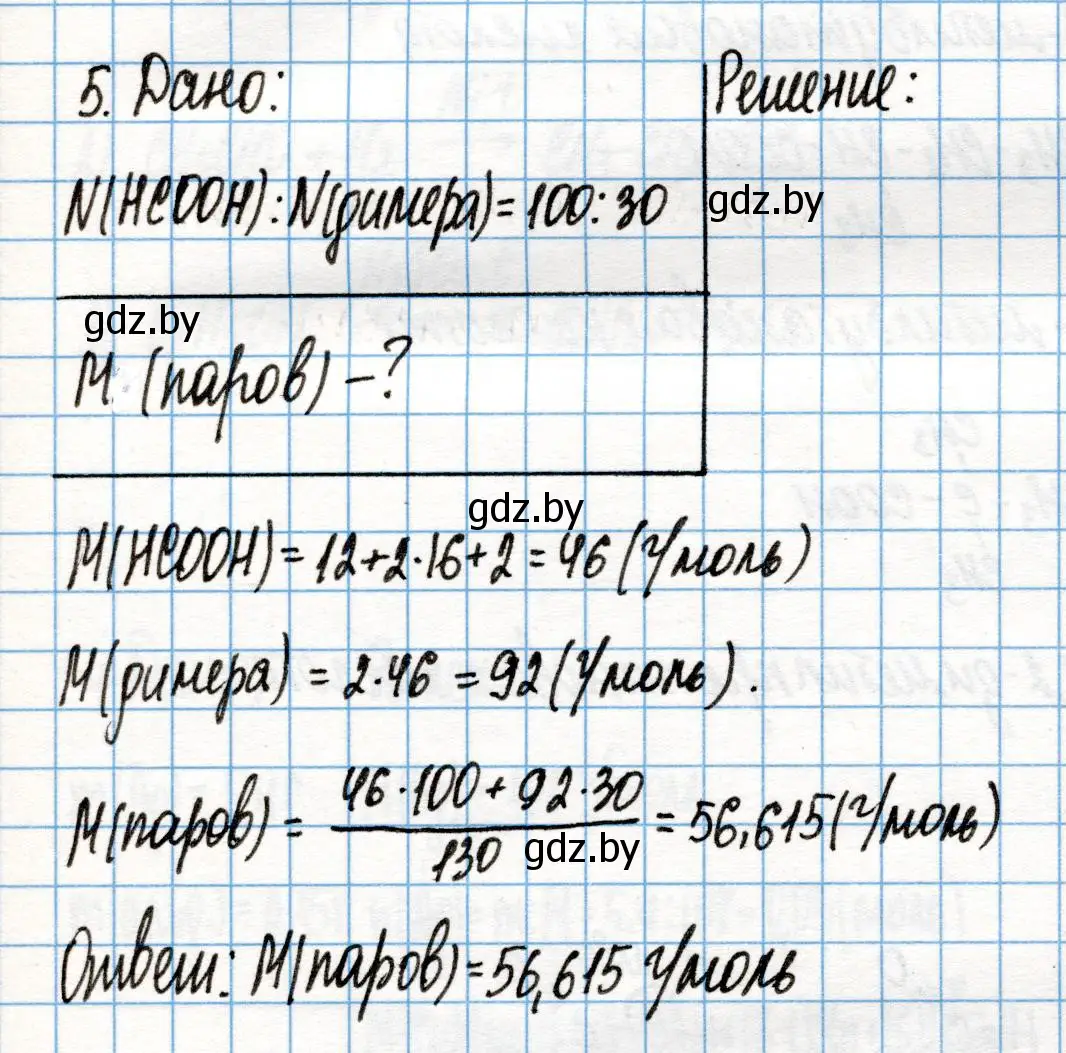 5. Дано:
Решение:
N(HCOOH):N(димера)=100:30
gdz.by
gdz.by
M (паров) -?
gdz.by
M(HCOOH)=12+2·16+2=46(г/моль)
M(димера)=2·46=92(г/моль).
M(паров) = \frac{46·100+92·30}{130} = 56,615(г/моль)
gdz.by
Ответ: M(паров)=56,615 г/моль